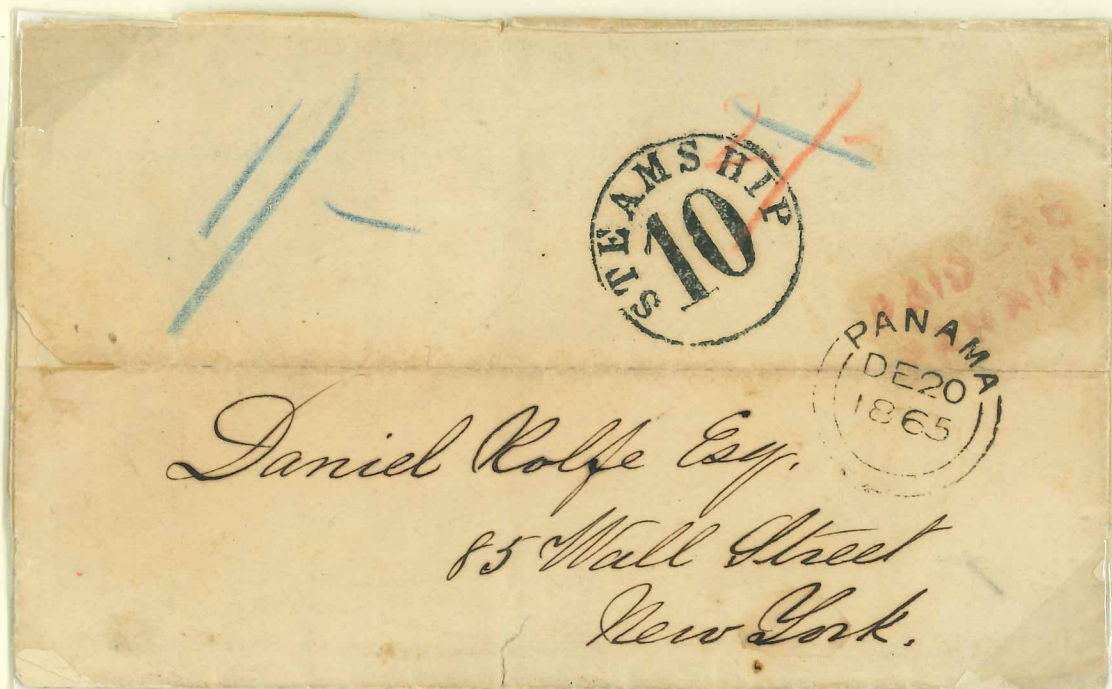 1/-
2/-
STEAMSHIP
10
PAID TO
PANAMA
PANAMA
DE 20
1865
Daniel Rolfe Esq.
85 Wall Street
New York.